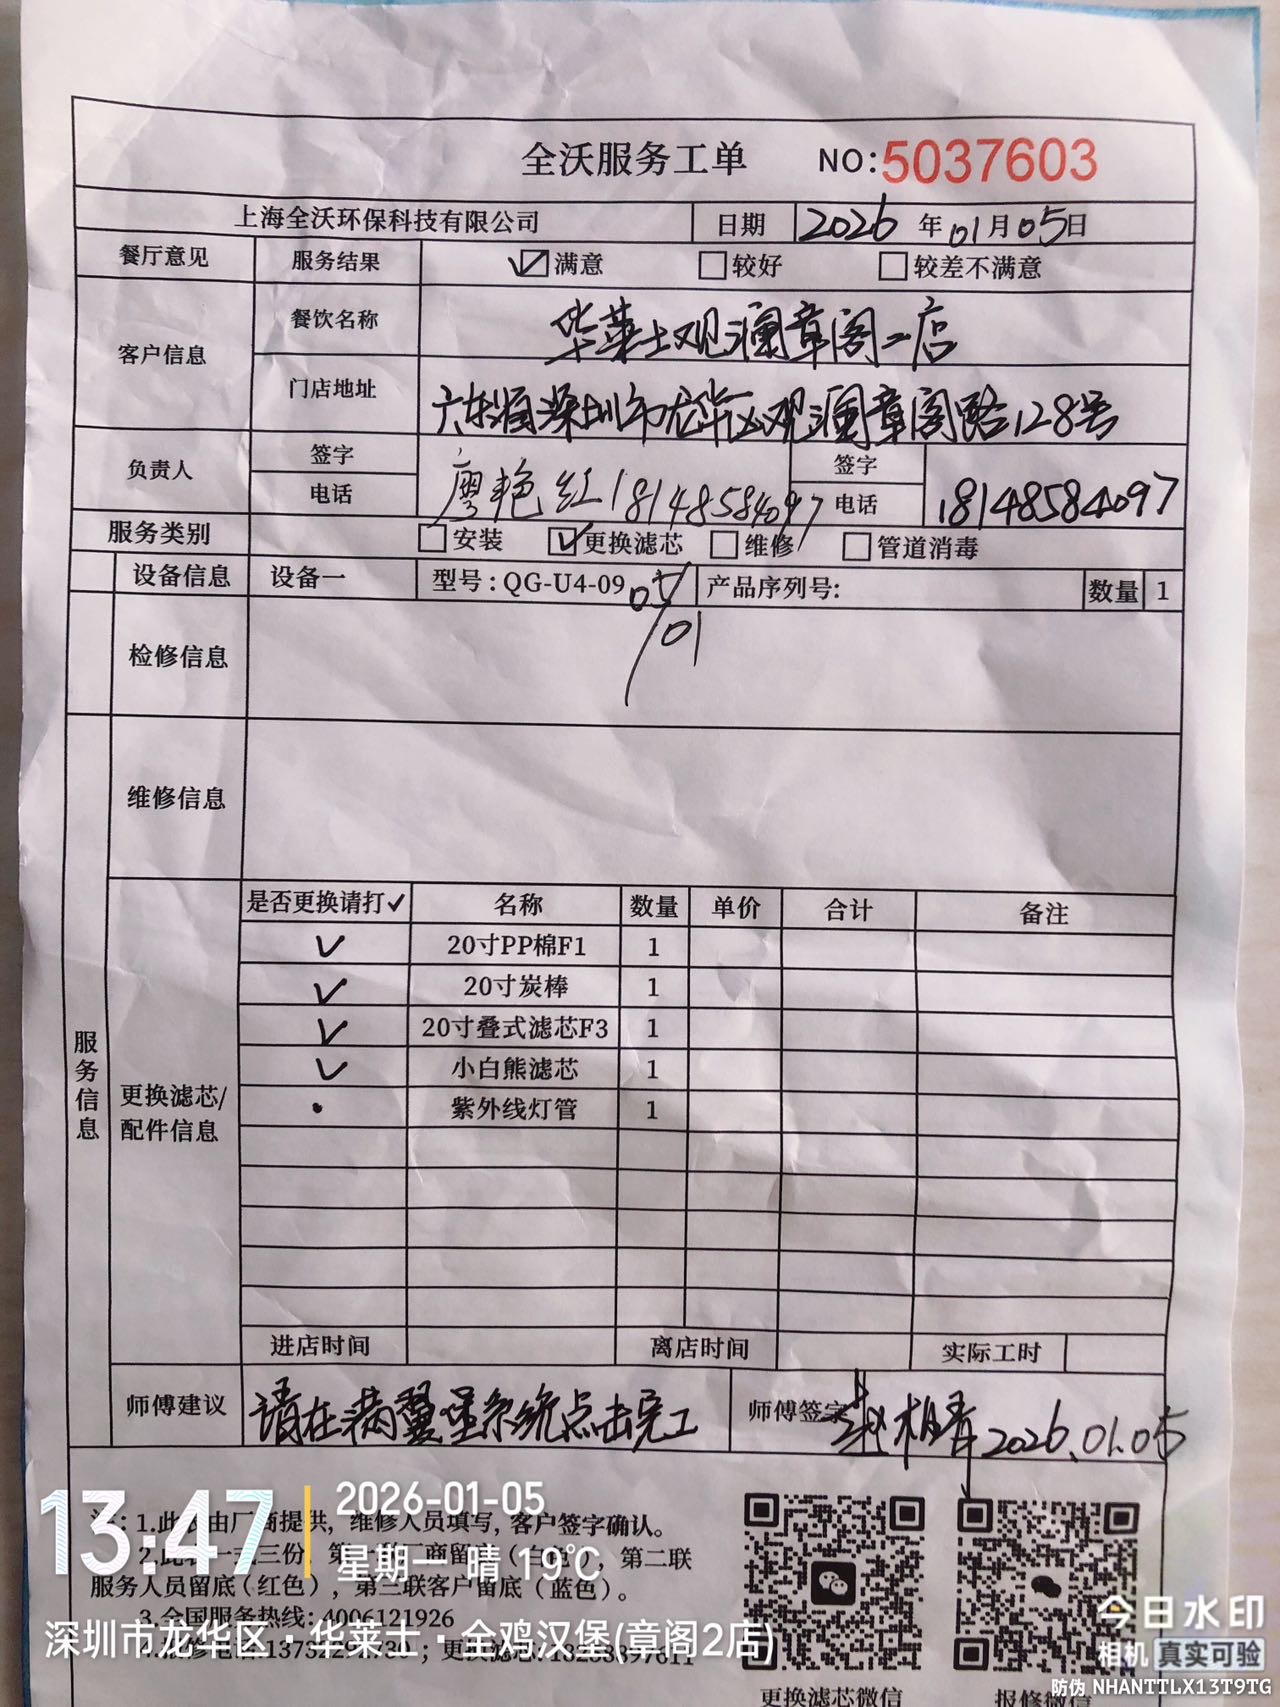 全沃服务工单 NO:5037603
上海全沃环保科技有限公司 日期 2026 年 01 月 05 日
餐厅意见 服务结果 ☑满意 □较好 □较差不满意
客户信息 餐饮名称 华莱士观澜章阁二店
门店地址 广东省深圳市龙华区观澜章阁路128号
负责人 签字 廖艳红 签字
电话 18148584097 电话 18148584097
服务类别 □安装 ☑更换滤芯 □维修 □管道消毒
设备信息 设备一 型号:QG-U4-09 产品序列号: 数量 1
05/01
检修信息
维修信息
服务信息
更换滤芯/配件信息
是否更换请打✓ 名称 数量 单价 合计 备注
✓ 20寸PP棉F1 1
✓ 20寸炭棒 1
✓ 20寸叠式滤芯F3 1
✓ 小白熊滤芯 1
• 紫外线灯管 1
进店时间 离店时间 实际工时
师傅建议 请在满翼堡系统点击完工 师傅签字 赵相青 2026.01.05
注:1.此表由厂商提供, 维修人员填写, 客户签字确认。
2.此表一式三份, 第一联厂商留底(白色), 第二联
服务人员留底(红色), 第三联客户留底(蓝色)。
3.全国服务热线:4006121926
更换滤芯微信 报修微信
13:47 2026-01-05
星期一 晴 19℃
深圳市龙华区·华莱士·全鸡汉堡(章阁2店)
今日水印
相机 真实可验
防伪 NHANTTLX13T9TG